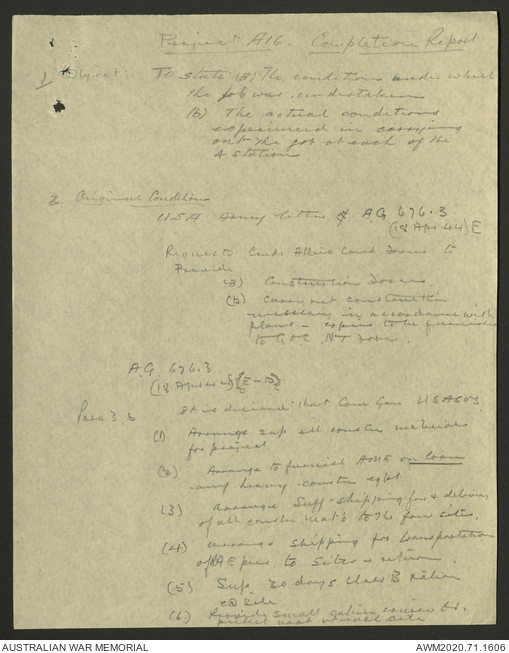 Project A16. Completion Report
1 Object: To state (a) The conditions under which
the job was undertaken
(b) The actual conditions
experienced in carrying
out the job at each of the
4 stations
2 Original Conditions
USA Army letter AG 676.3
(18 Apr 44) E
Requests Allied Land Forces to
Provide
(a) Construction Forces
(b) Carry out construction
necessary in accordance with
plans - copies to be furnished
to GOC NT Force.
AG 676.3
(18 Apr 44) (E-D)
Para 3 b It is desired that Com Gen USASOS
(1) Arrange sup all constr materials
for project
(2) Arrange to furnish on loan
any heavy constr eqpt
(3) Arrange shipping for & delivery
of all constr mat's to the four sites
(4) Arrange shipping for transportation
of RAE pers. to sites & return.
(5) Sup. 30 days Class B ration
ea site
(6) Provide small cabin cruiser or
picket boat at each site
AUSTRALIAN WAR MEMORIAL
AWM2020.71.1606